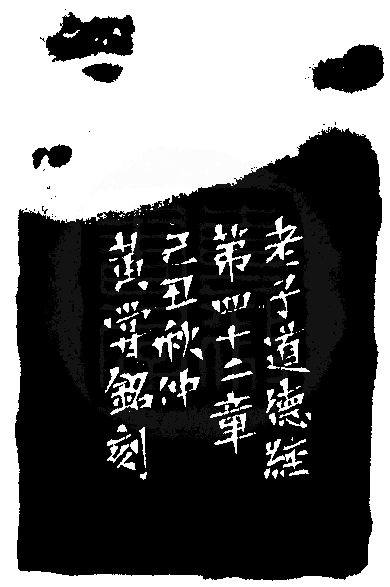 老子道德經
第四十二章
己丑秋仲
黃嘗銘刻